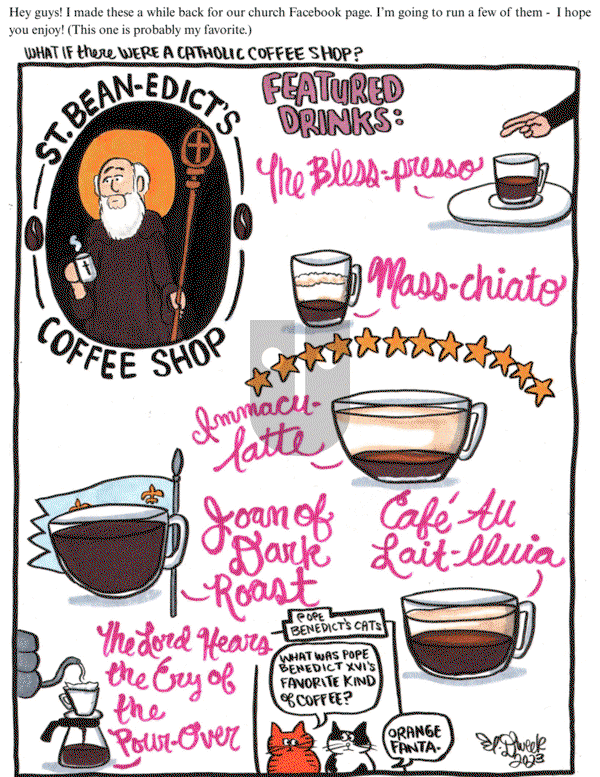 Hey guys! I made these a while back for our church Facebook page. I'm going to run a few of them - I hope
you enjoy! (This one is probably my favorite.)
WHAT IF there WERE A CATHOLIC COFFEE SHOP?
ST. BEAN-EDICT'S
COFFEE SHOP
FEATURED
DRINKS:
The Bless-presso
Mass-chiato
Immacu-
latte
Joan of
Dark
Roast
Café Au
Lait-lluia
The Lord Hears
the Cry of
the
Pour-Over
POPE
BENEDICT'S CATS
WHAT WAS POPE
BENEDICT XVI'S
FAVORITE KIND
of COFFEE?
ORANGE
FANTA.
2023